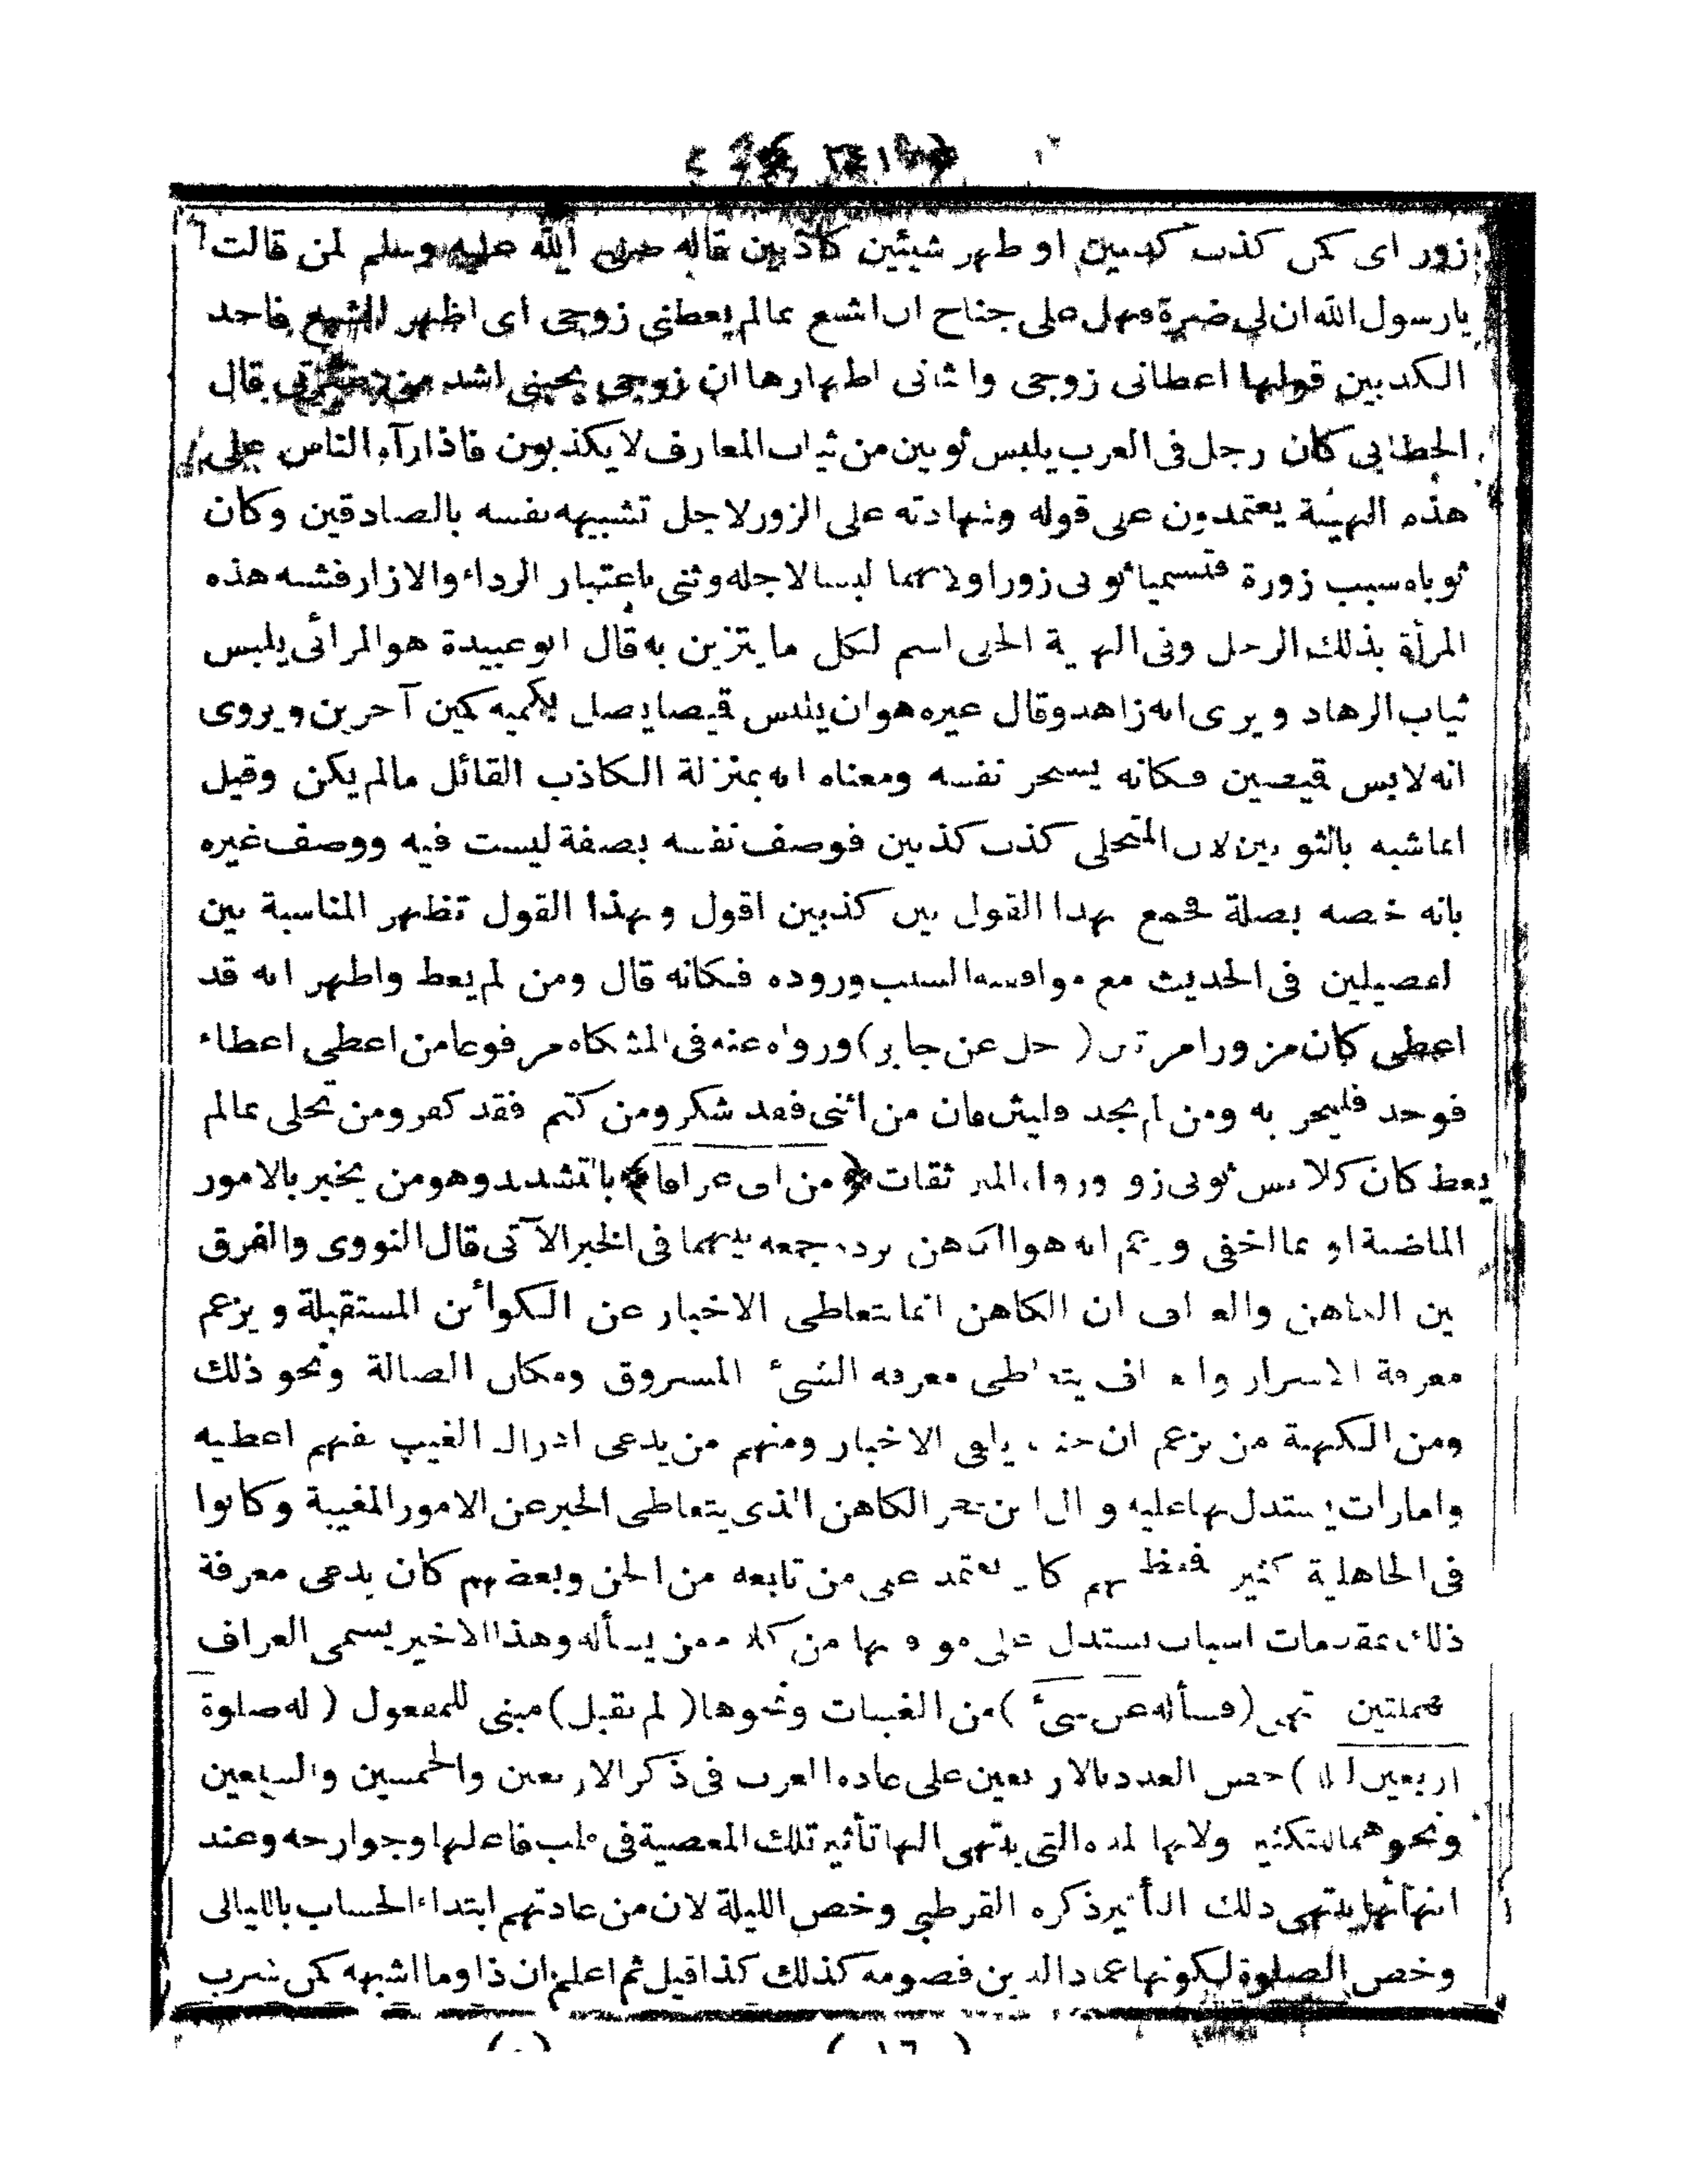 زور اى كمن كذب كذبين او ظهر شيئين كاذبين قاله صلى الله عليه وسلم لمن قالت
يارسول الله ان لى ضرة فهل على جناح ان اشبع بمالم يعطنى زوجى اى اظهر الشبع فاحد
الكذبين قولها اعطانى زوجى والثانى اظهارها ان زوجى يحبنى اشد من ضرتى قال
الخطابى كان رجل فى العرب يلبس ثوبين من ثياب المعارف لا يكذبون فاذا رآه الناس على
هذه الهيئة يعتمدون على قوله وشهادته على الزور لاجل تشبيهه نفسه بالصادقين وكان
ثوباه سبب زورة فتسميا ثوبى زور اولانهما لبسا لاجله وثنى باعتبار الرداء والازار فشبه هذه
المرأة بذلك الرجل وفى النهاية الحلى اسم لكل ما يتزين به قال ابو عبيدة هو المرائى يلبس
ثياب الزهاد ويرى انه زاهد وقال غيره هو ان يلبس قميصا يصل بكميه كمين آخرين ويروى
انه لابس قميصين فكانه يسخر نفسه ومعناه انه بمنزلة الكاذب القائل مالم يكن وقيل
انما شبه بالثوبين لان المتحلى كذب كذبين فوصف نفسه بصفة ليست فيه ووصف غيره
بانه خصه بصلة فجمع بهذا القول بين كذبين اقول وبهذا القول تظهر المناسبة بين
الفصيلين فى الحديث مع موافقته لسبب وروده فكانه قال ومن لم يعط واظهر انه قد
اعطى كان مزورا مرتين (حل عن جابر) ورواه عنه فى المشكاه مرفوعا من اعطى اعطاء
فوجد فليجز به ومن لم يجد فليثن فان من اثنى فقد شكر ومن كتم فقد كفر ومن تحلى بمالم
يعط كان كلابس ثوبى زور ورواه ثقات ﴿من اتى عرافا﴾ بالتشديد وهو من يخبر بالامور
الماضية او بما اخفى وزعم انه هو الكاهن يرده جمعه بينهما فى الخبر الآتى قال النووى والفرق
بين الكاهن والعراف ان الكاهن انما يتعاطى الاخبار عن الكوائن المستقبلة ويزعم
معرفة الاسرار والعراف يتعاطى معرفة الشىء المسروق ومكان الضالة ونحو ذلك
ومن الكهنة من يزعم ان جنيا يلقى الاخبار ومنهم من يدعى ادراك الغيب بفهم اعطيه
وامارات يستدل بها عليه وقال ابن حجر الكاهن الذى يتعاطى الخبر عن الامور المغيبة وكانوا
فى الجاهلية كثير فبعضهم كان يعتمد على من تابعه من الجن وبعضهم كان يدعى معرفة
ذلك بمقدمات اسباب يستدل على مواقعها من كلام من يسأله وهذا الاخير يسمى العراف
بمهملتين انتهى (فسأله عن شىء) من الغيبات ونحوها (لم يقبل) مبنى للمفعول (له صلوة
اربعين ليلة) خص العدد بالاربعين على عادة العرب فى ذكر الاربعين والخمسين والسبعين
ونحوهما للتكثير ولانها المدة التى ينتهى اليها تأثير تلك المعصية فى قلب فاعلها وجوارحه وعند
انتهائها ينتهى ذلك التأثير ذكره القرطبى وخص الليلة لان من عادتهم ابتداء الحساب بالليالى
وخص الصلوة لكونها عماد الدين فصومه كذلك كذا قيل ثم اعلم ان ذا وما اشبهه كمن شرب
(١٦)